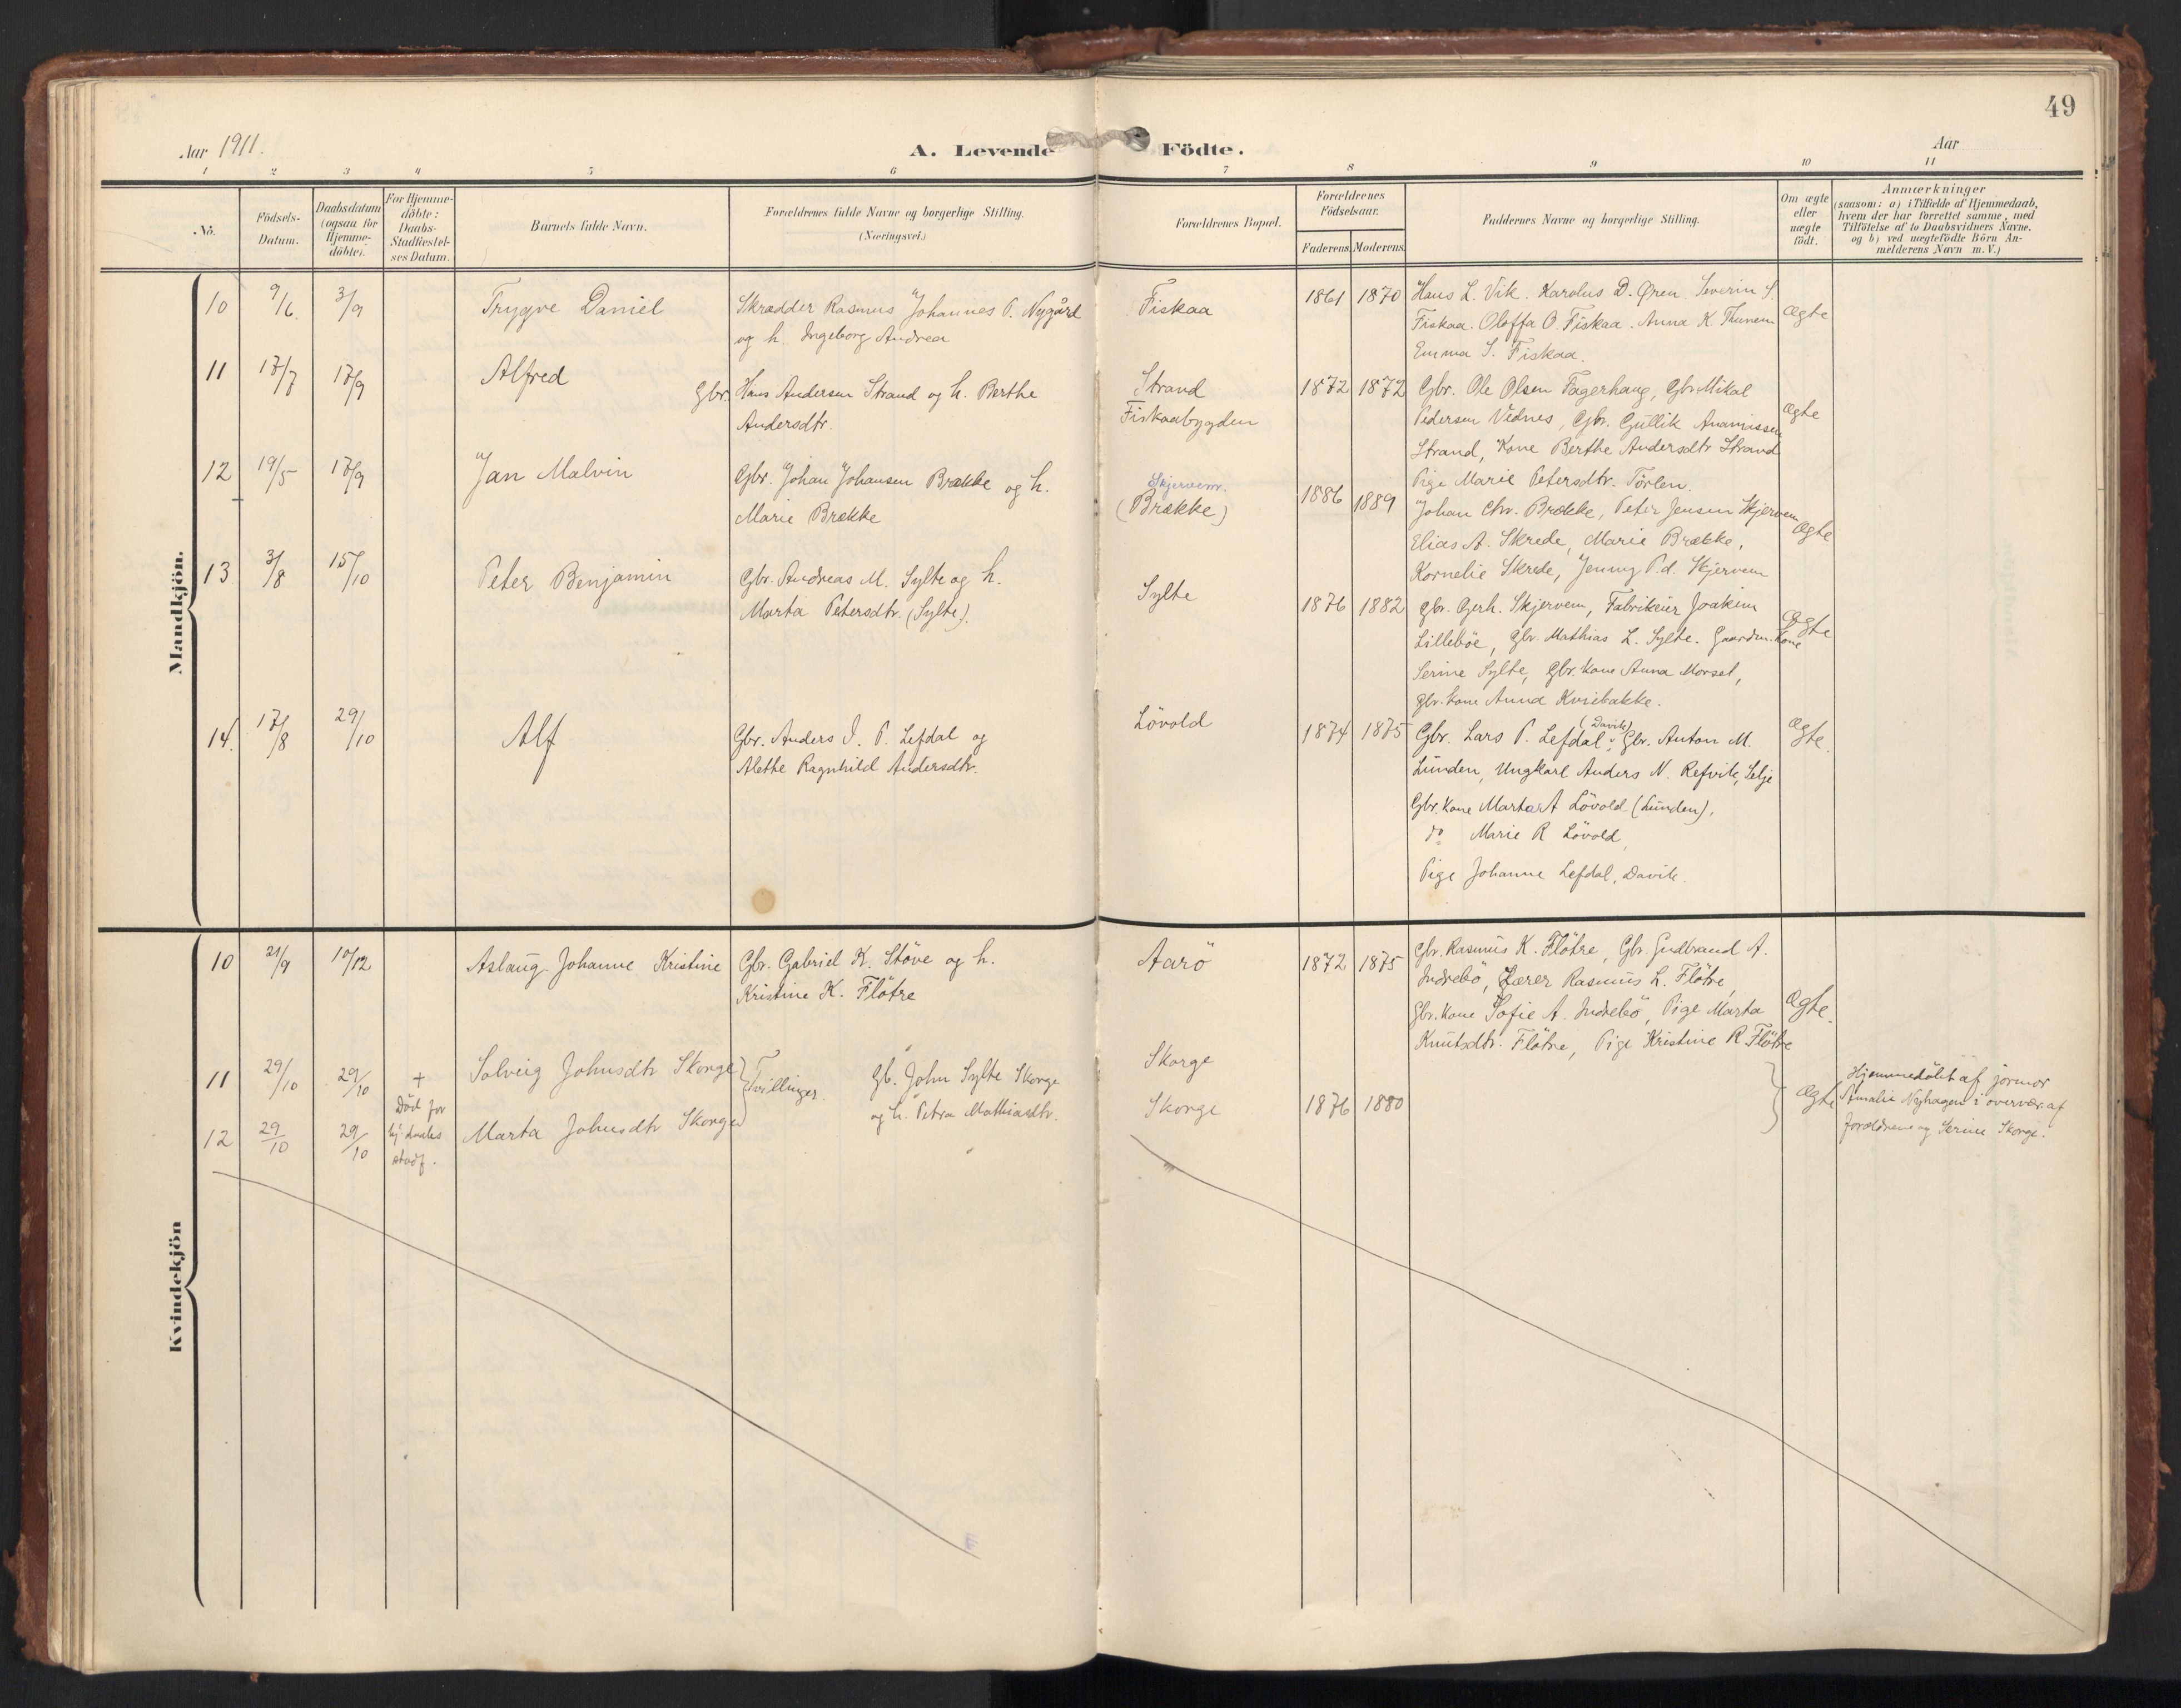 49
Aar 1911.
A. Levende Födte.
Aar
1 2 3 4 5 6 7 8 9 10 11
No.
Födsels-
Datum.
Daabsdatum
(ogsaa for
Hjemme-
döbte).
For Hjemme-
döbte:
Daabs-
Stadfæstel-
ses Datum.
Barnets fulde Navn.
Forældrenes fulde Navne og borgerlige Stilling.
(Næringsvei.)
Forældrenes Bopæl.
Forældrenes
Födselsaar.
Faderens. Moderens.
Faddernes Navne og borgerlige Stilling.
Om ægte
eller
uægte
födt.
Anmærkninger
(saasom: a) i Tilfælde af Hjemmedaab,
hvem der har forrettet samme, med
Tilföielse af to Daabsvidners Navne,
og b) ved uægtefödte Börn An-
melderens Navn m. V.)
Mandkjön.
10 9/6 3/9 Trygve Daniel
Skrædder Rasmus Johannes P. Nygård
og h. Ingeborg Andrea
Fiskaa
1861 1870
Hans L. Vik. Karolus D. Ören. Severin S.
Fiskaa. Oloffa O. Fiskaa. Anna K. Thunem
Emma S. Fiskaa.
Ægte
11 17/7 17/9 Alfred
Gbr. Hans Andersen Strand og h. Berthe
Andersdtr.
Strand
Fiskaabygden
1872 1872
Gbr. Ole Olsen Fagerhaug, Gbr. Mikal
Pedersen Vednes, Gbr. Gullik Ananiassen
Strand, Kone Berthe Andersdtr Strand
Pige Marie Petersdtr. Törlen.
Ægte
12 19/5 17/9 Jan Malvin
Gbr. Johan Johansen Brække og h.
Marie Brække
Skjervem.
(Brække)
1886 1889
Johan Chr. Brække, Peter Jensen Skjervem
Elias A. Skrede, Marie Brække,
Kornelie Skrede, Jenny P.d. Skjervem
Ægte
13 3/8 15/10 Peter Benjamin
Gbr. Andreas M. Sylte og h.
Marta Petersdtr. (Sylte).
Sylte
1876 1882
Gbr. Gerh. Skjervem, Fabrikeier Joakim
Lilleböe, Gbr. Mathias L. Sylte. Gaardm. Kone
Serine Sylte, Gbr. Kone Anna Morset,
Gbr. Kone Anna Kviebakke.
Ægte
14. 17/8 29/10 Alf
Gbr. Anders J. P. Lefdal og
Alethe Ragnhild Andersdtr.
Lövold
1874 1875
(Davik)
Gbr. Lars P. Lefdal, Gbr. Anton M.
Lunden, Ungkarl Anders N. Refvik, Selje
Gbr. Kone Marta A Lövold (Lunden),
do Marie R Lövold,
Pige Johanne Lefdal, Davik.
Ægte.
Kvindekjön
10 21/9 10/12 Aslaug Johanne Kristine
Gbr. Gabriel K. Stöve og h.
Kristine K. Flötre
Aarö
1872 1875
Gbr. Rasmus K. Flötre, Gbr. Gudbrand A.
Indrebö, Lærer Rasmus L. Flötre,
Gbr. Kone Sofie A. Indrebö, Pige Marta
Knutsdtr. Flötre, Pige Kristine R Flötre
Ægte.
11 29/10 29/10 + Solveig Johnsdtr Skorge
Död för
hj. daabs
stadf.
12 29/10 29/10 Marta Johnsdtr Skorge
Tvillinger.
Gb. John Sylte Skorge
og h. Petra Mathiasdtr.
Skorge
Skorge
1876 1880
Ægte
Hjemmedöbt af jormor
Amalie Nyhagen i overvær af
forældrene og Serine Skorge.